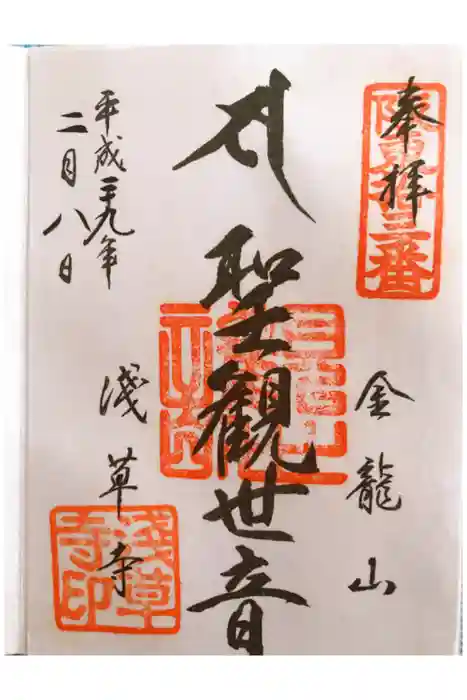 奉拝
坂東拾三番
金龍山
聖観世音
浅草寺
浅草寺印
平成二九年
二月八日